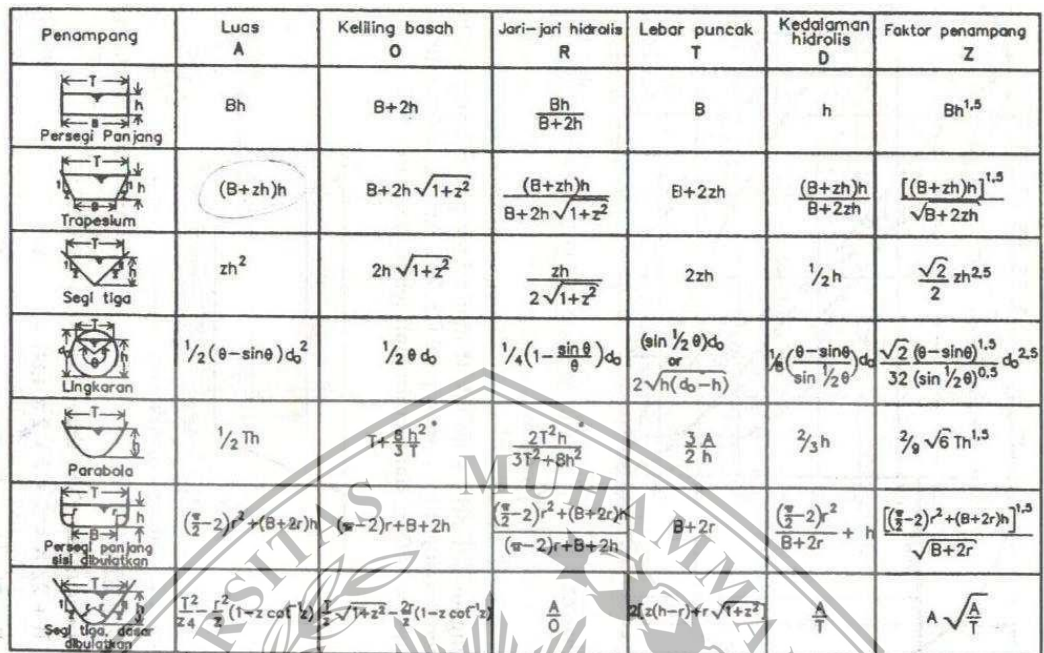 Penampang | Luas A | Keliling basah O | Jari-jari hidrolis R | Lebar puncak T | Kedalaman hidrolis D | Faktor penampang Z
T h B Persegi Panjang | Bh | B+2h | Bh / B+2h | B | h | Bh^1,5
T 1 z 1 z h B Trapesium | (B+zh)h | B+2h √1+z² | (B+zh)h / B+2h √1+z² | B+2zh | (B+zh)h / B+2zh | [(B+zh)h]^1,5 / √B+2zh
T 1 z 1 z h Segi tiga | zh² | 2h √1+z² | zh / 2 √1+z² | 2zh | 1/2 h | √2 / 2 zh^2,5
T d₀ h θ Lingkaran | 1/2 (θ-sinθ) d₀² | 1/2 θ d₀ | 1/4 (1- sin θ / θ) d₀ | (sin 1/2 θ)d₀ or 2√h(d₀-h) | 1/8 (θ-sinθ / sin 1/2 θ) d₀ | √2 (θ-sinθ)^1,5 / 32 (sin 1/2 θ)^0,5 d₀^2,5
T h Parabola | 1/2 Th | T+ 8 h² / 3 T * | 2T²h / 3T²+8h² * | 3 A / 2 h | 2/3 h | 2/9 √6 Th^1,5
T r h B Persegi panjang sisi dibulatkan | (π/2 -2)r²+(B+2r)h | (π-2)r+B+2h | (π/2 -2)r²+(B+2r)h / (π-2)r+B+2h | B+2r | (π/2 -2)r² / B+2r + h | [(π/2 -2)r²+(B+2r)h]^1,5 / √B+2r
T 1 z r r h Segi tiga, dasar dibulatkan | T² / z4 - r² / z (1-z cot⁻¹z) | T / z √1+z² - 2r / z (1-z cot⁻¹z) | A / O | 2[z(h-r)+r √1+z²] | A / T | A √A/T
RSITAS MUHAMMA